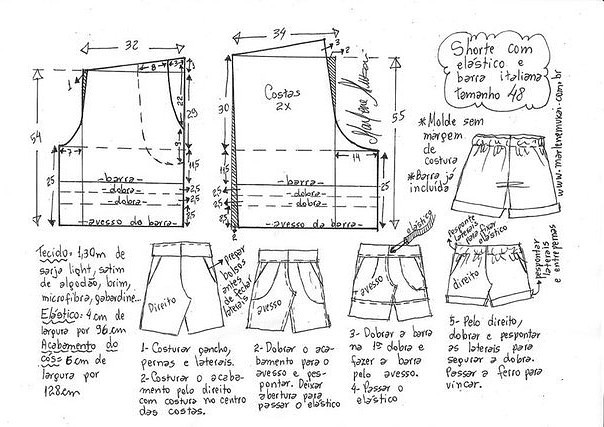 32
34
1
8
3
3
2
29
22
9
54
7
11,5
25
2,5
2,5
25
barra
dobra
dobra
avesso do barra
30
Costas
2X
55
14
11,5
25
2,5
2,5
25
2
barra
dobra
dobra
avesso da barra
Marlene Mukai
Shorte com
elástico e
barra italiana
tamanho 48
www.marlenemukai.com.br
*Molde sem
margem
de
costura
*Barra já
incluída
Tecido: 1,30m de
sarja light, satim
de algodão, brim,
microfibra, gabardine...
Elástico: 4 cm de
largura por 96 cm
Acabamento do
cós: 6 cm de
largura por
128 cm
Direito
pregar
bolsos
antes
de fechar
laterais
1- Costurar gancho,
pernas e laterais.
2- Costurar o acaba-
mento pelo direito
com costura no centro
das costas.
avesso
2- Dobrar o aca-
bamento para o
avesso e pes-
pontar. Deixar
abertura para
passar o elástico
elástico
avesso
3- Dobrar a barra
na 1ª dobra e
fazer a barra
pelo avesso.
4- Passar o
elástico
Pesponte
laterais
para fixar
elástico
direito
pespontar
laterais
e entrepernas
5- Pelo direito,
dobrar e pespontar
as laterais para
segurar a dobra.
Passar a ferro para
vincar.